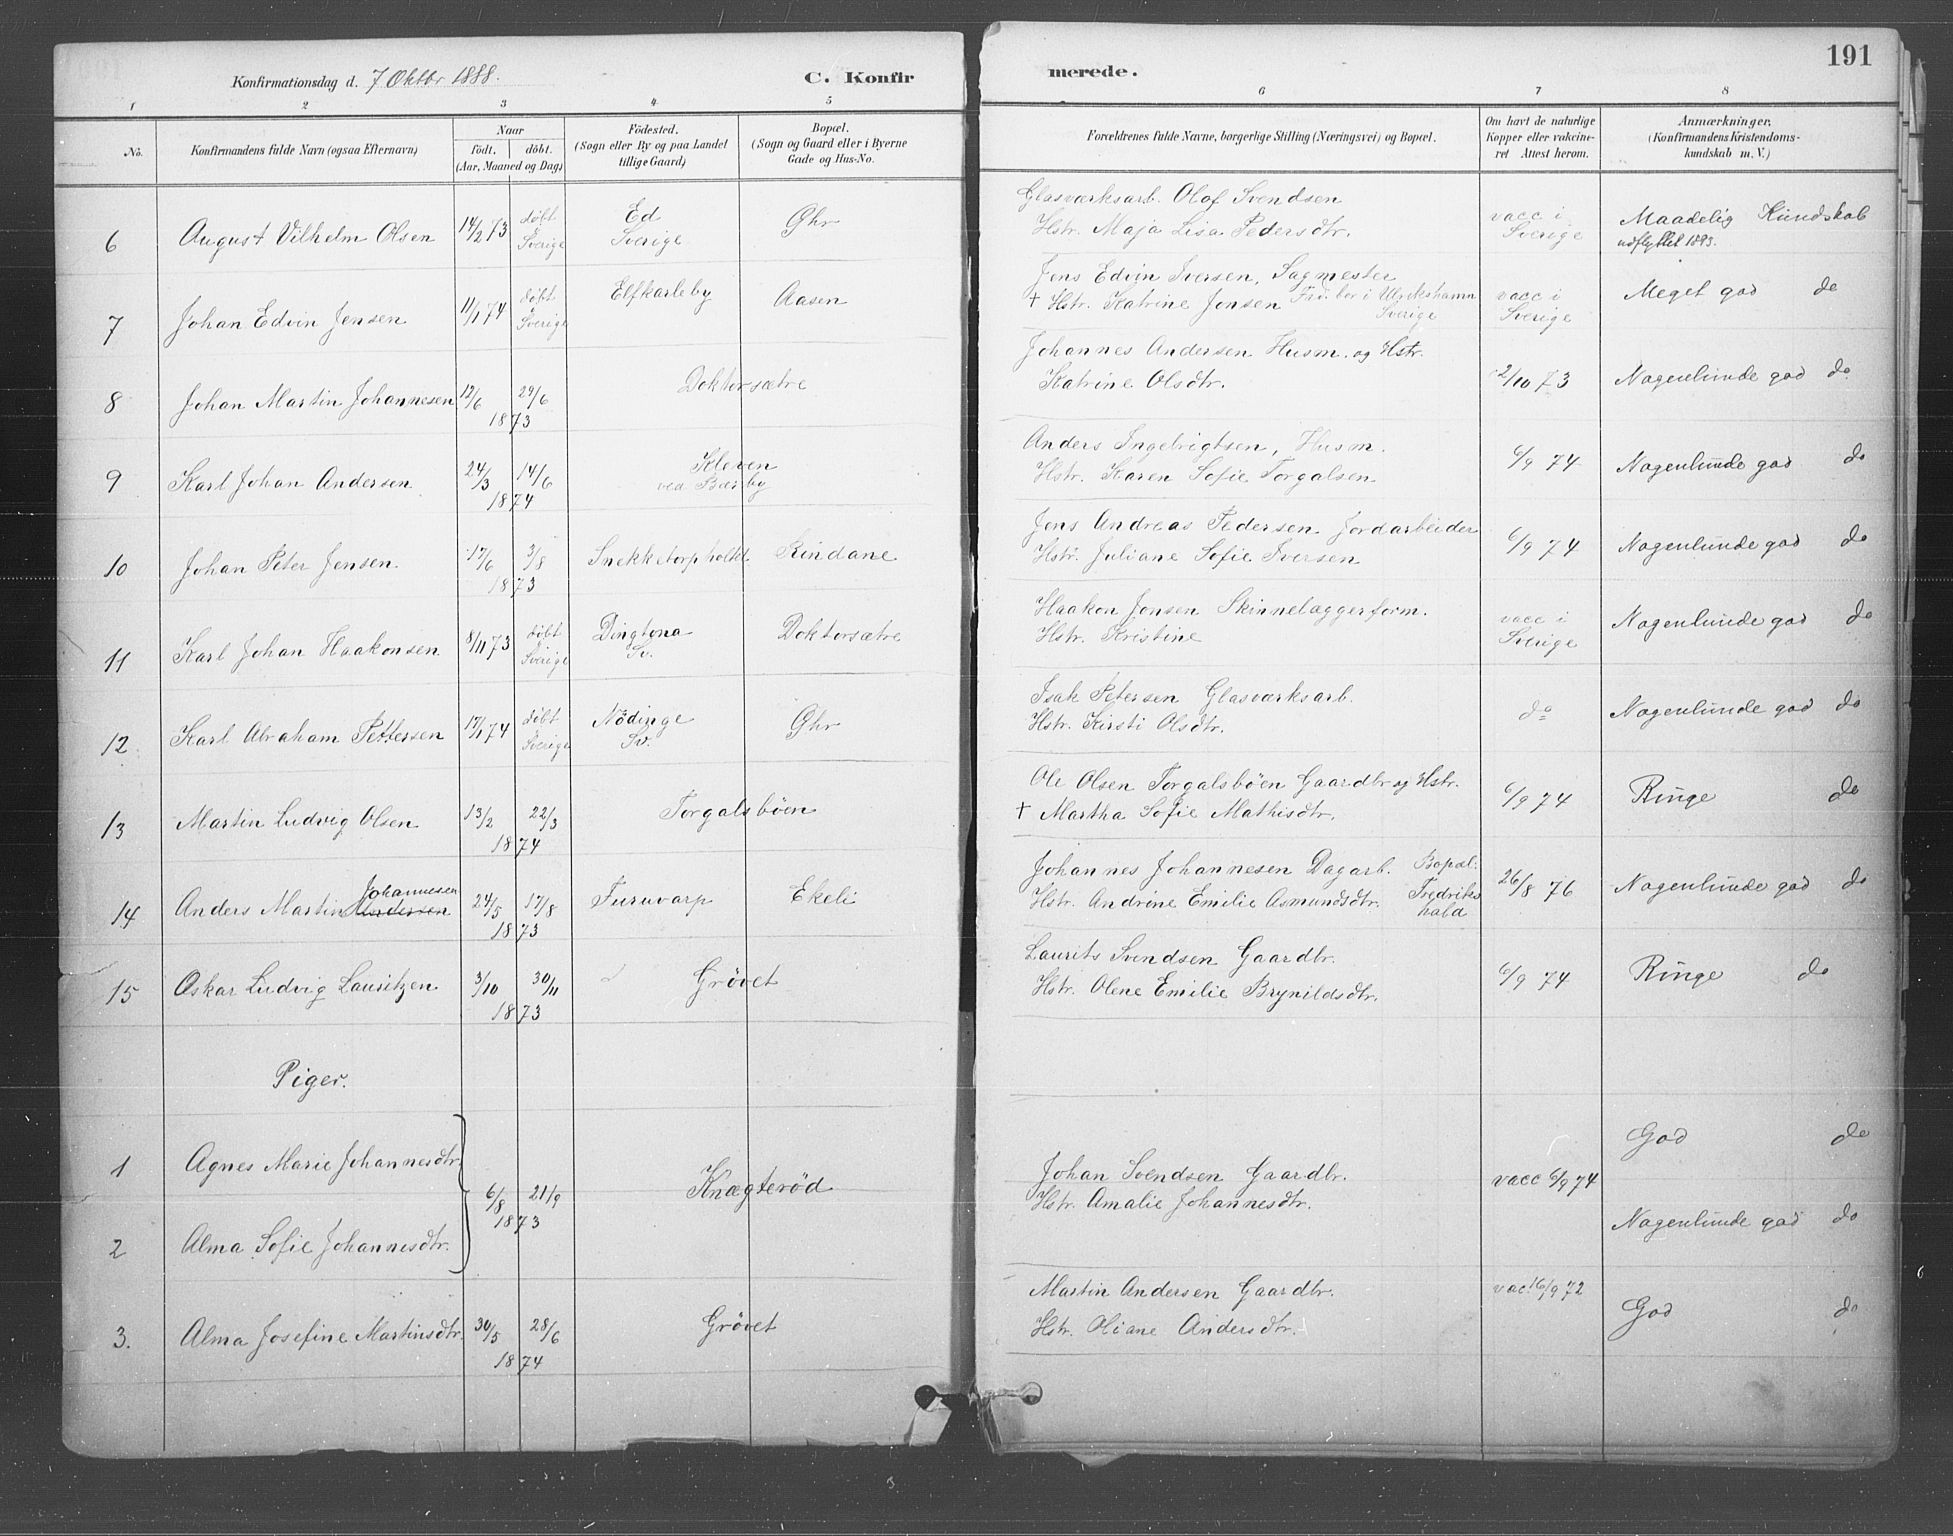 191
Konfirmationsdag d. 7 Oktbr 1888.
C. Konfirmerede.
1 2 3 4 5 6 7 8
No.
Konfirmandens fulde Navn (ogsaa Efternavn)
Naar
födt. döbt.
(Aar, Maaned og Dag)
Födested.
(Sogn eller By og paa Landet
tillige Gaard)
Bopæl.
(Sogn og Gaard eller i Byerne
Gade og Hus-No.
Forældrenes fulde Navne, borgerlige Stilling (Næringsvei) og Bopæl.
Om havt de naturlige
Kopper eller vakcine-
ret Attest herom.
Anmærkninger.
(Konfirmandens Kristendoms-
kundskab m. V.)
6 August Vilhelm Olsen 14/2 73 döbt i Sverige Ed Sverige Ghr
Glasværksarb. Olof Svendsen
Hstr. Maja Lisa Pedersdtr.
vacc i Sverige
Maadelig Kundskab
udflyttet 1893.
7 Johan Edvin Jensen 11/1 74 döbt i Sverige Elfkarleby Aasen
Jens Edvin Iversen, Sagmester
† Hstr. Katrine Jonsen bor i Ulrikshamn
Sverige
vacc i Sverige
Meget god do
8 Johan Martin Johannesen 12/6 29/6 1873 Doktorsætre
Johannes Andersen Husm. og Hstr.
Katrine Olsdtr.
2/10 73
Nogenlunde god do
9 Karl Johan Andersen 24/3 14/6 1874 Kleven
ved Bærby
Anders Ingebrigtsen, Husm.
Hstr. Karen Sofie Torgalsen
6/9 74
Nogenlunde god do
10 Johan Peter Jensen 17/6 3/8 1873 Snekketorpholtet Rindane
Jens Andreas Pedersen Jordarbeider
Hstr. Juliane Sofie Iversen
6/9 74
Nogenlunde god do
11 Karl Johan Haakonsen 8/11 73 döbt i Sverige Dingtona Sv. Doktorsætre
Haakon Jonsen Skinnelæggerform.
Hstr. Kristine
vacc i Sverige
Nogenlunde god do
12 Karl Abraham Pettersen 17/1 74 döbt i Sverige Nödinge Sv. Ghr
Isak Petersen Glasværksarb.
Hstr. Kirsti Olsdtr.
do
Nogenlunde god do
13 Martin Ludvig Olsen 13/2 22/3 1874 Torgalsböen
Ole Olsen Torgalsböen Gaardbr og Hstr.
† Martha Sofie Mathisdtr.
6/9 74
Ringe do
14 Anders Martin Andersen Johannesen 24/5 17/8 1873 Furuvarp Ekeli
Johannes Johannesen Dagarb. Bopæl:
Hstr. Andrine Emilie Asmundsdtr. Fredriks
hald
26/8 76
Nogenlunde god do
15 Oskar Ludvig Lauritzen 3/10 30/11 1873 Grövet
Laurits Svendsen Gaardbr.
Hstr. Olene Emilie Brynildsdtr.
6/9 74
Ringe do
Piger.
1 Agnes Marie Johannesdtr.
God do
6/8 21/9 1873 Knægteröd
Johan Svendsen Gaardbr.
Hstr. Amalie Johannesdtr.
vacc 6/9 74
2 Alma Sofie Johannesdtr.
Nogenlunde god do
3. Alma Josefine Martinsdtr. 30/5 28/6 1874 Grövet
Martin Andersen Gaardbr.
Hstr. Oliane Andersdtr.
vac. 16/9 72
God do